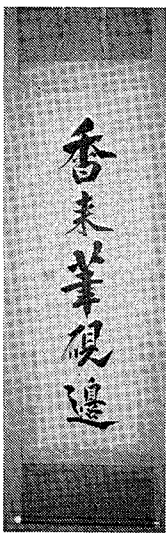 香来筆硯邊